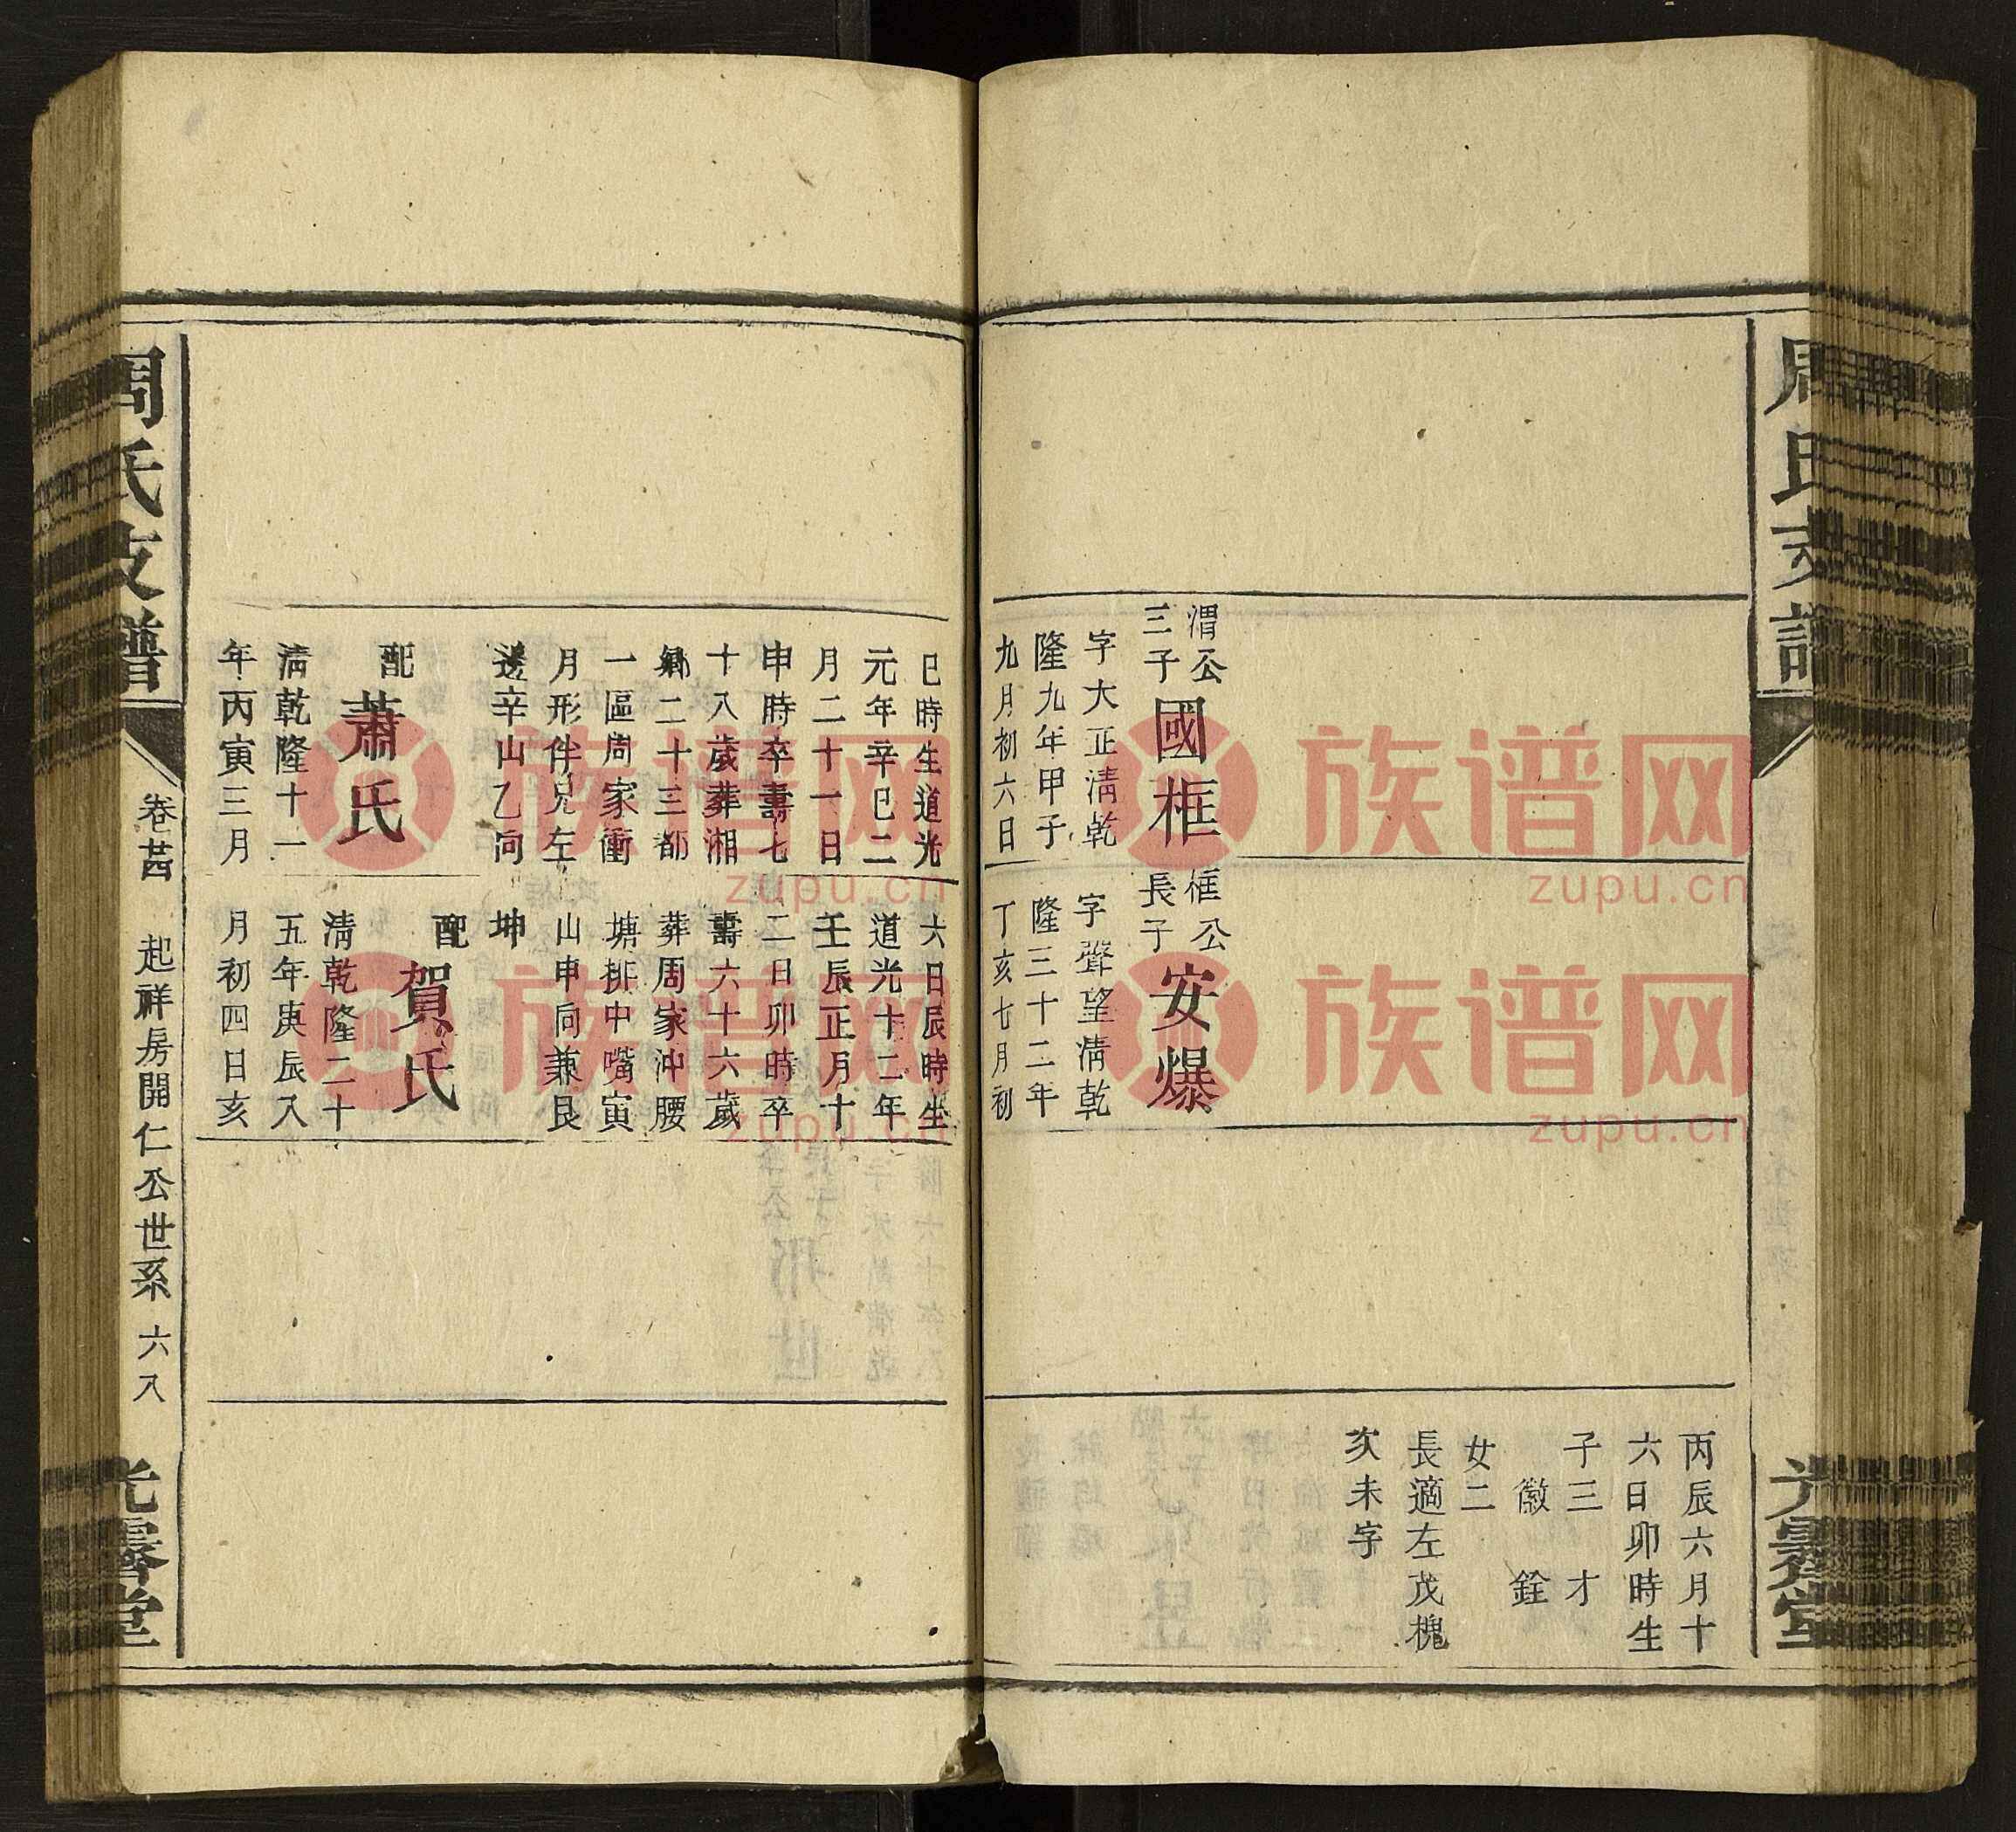 周氏支譜
光霽堂
渭公
三子
國框
字大正清乾
隆九年甲子
九月初六日
框公
長子
安爆
字聲望清乾
隆三十二年
丁亥七月初
丙辰六月十
六日卯時生
子三　才
徽　銓
女二
長適左茂槐
次未字
巳時生道光
元年辛巳二
月二十一日
申時卒壽七
十八歲葬湘
鄉二十三都
一區周家衝
月形伴兄左
邊辛山乙向
配
蕭氏
清乾隆十一
年丙寅三月
六日辰時生
道光十二年
壬辰正月十
二日卯時卒
壽六十六歲
葬周家沖腰
塘排中嘴寅
山申向兼艮
坤
配
賀氏
清乾隆二十
五年庚辰八
月初四日亥
周氏支譜
卷茜　起祥房開仁公世系　六八
光霽堂
族谱网
zupu.cn
族谱网
zupu.cn
族谱网
zupu.cn
族谱网
zupu.cn